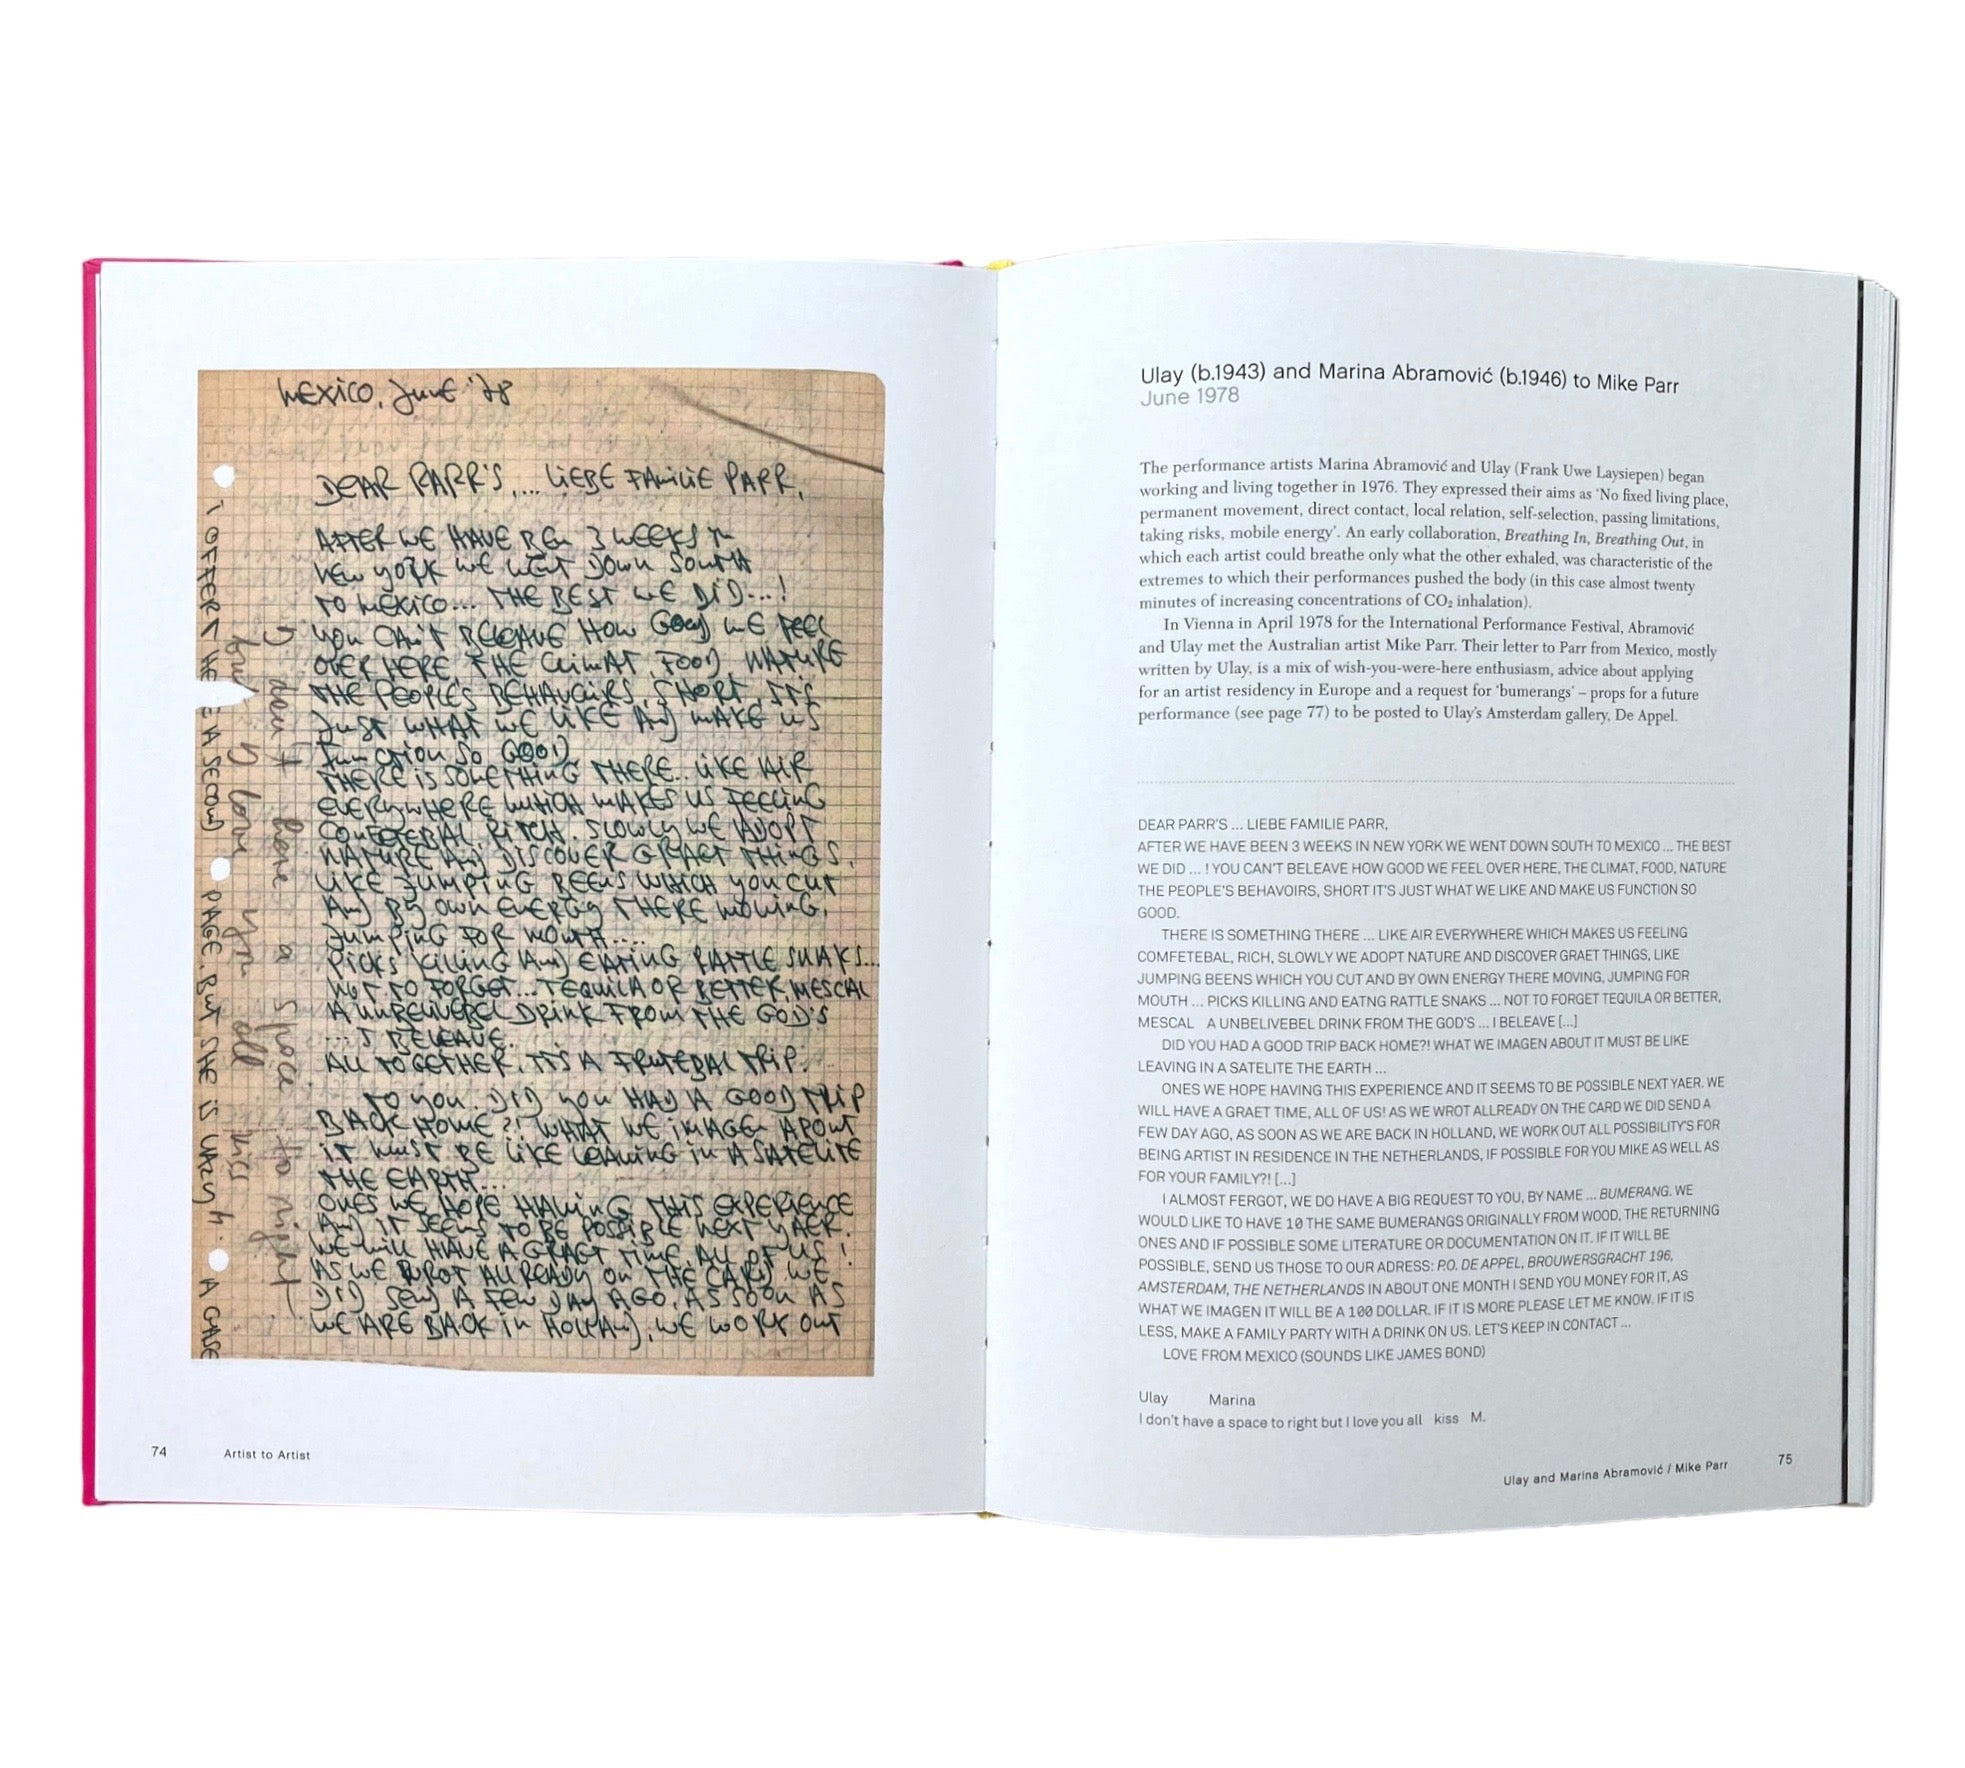 MEXICO, JUNE '78
DEAR PARR'S, ... LIEBE FAMILIE PARR,
AFTER WE HAVE BEN 3 WEEKS IN
NEW YORK WE WENT DOWN SOUTH
TO MEXICO... THE BEST WE DID...!
YOU CAN'T BELEAVE HOW GOOD WE FEEL
OVER HERE, THE CLIMAT, FOOD, NATURE
THE PEOPLE'S BEHAVOIRS, SHORT, IT'S
JUST WHAT WE LIKE AND MAKE US
FUNCTION SO GOOD
THERE IS SOMETHING THERE.. LIKE AIR
EVERYWHERE WHICH MAKES US FEELING
COMFETEBAL, RITCH. SLOWLY WE ADOPT
NATURE AND DISCOVER GRAET THINGS,
LIKE JUMPING BEENS WHICH YOU CUT
AND BY OWN ENERGY THERE MOVING,
JUMPING FOR MONTH....
PICKS KILLING AND EATING RATTLE SNAKS...
NOT TO FORGET... TEQUILA OR BETTER, MESCAL
A UNBELIVEBEL DRINK FROM THE GOD'S
.... I BELEAVE.
ALL TOGETHER, IT'S A FRUTEBAL TRIP.
TO YOU. DID YOU HAD A GOOD TRIP
BACK HOME?! WHAT WE IMAGEN ABOUT
IT MUST BE LIKE LEAVING IN A SATELITE
THE EARTH...
ONES WE HOPE HAVING THIS EXPERIENCE
AND IT SEEMS TO BE POSSIBLE NEXT YAER.
WE WILL HAVE A GRAET TIME, ALL OF US!
AS WE WROT ALLREADY ON THE CARD WE
DID SEND A FEW DAY AGO, AS SOON AS
WE ARE BACK IN HOLLAND, WE WORK OUT
I don't have a space to right
but I love you all kiss
I OFFERT HE A SECOND PAGE, BUT SHE IS LAZY
74
Artist to Artist
Ulay (b.1943) and Marina Abramović (b.1946) to Mike Parr
June 1978
The performance artists Marina Abramović and Ulay (Frank Uwe Laysiepen) began
working and living together in 1976. They expressed their aims as 'No fixed living place,
permanent movement, direct contact, local relation, self-selection, passing limitations,
taking risks, mobile energy'. An early collaboration, Breathing In, Breathing Out, in
which each artist could breathe only what the other exhaled, was characteristic of the
extremes to which their performances pushed the body (in this case almost twenty
minutes of increasing concentrations of CO₂ inhalation).
In Vienna in April 1978 for the International Performance Festival, Abramović
and Ulay met the Australian artist Mike Parr. Their letter to Parr from Mexico, mostly
written by Ulay, is a mix of wish-you-were-here enthusiasm, advice about applying
for an artist residency in Europe and a request for 'bumerangs' – props for a future
performance (see page 77) to be posted to Ulay's Amsterdam gallery, De Appel.
DEAR PARR'S ... LIEBE FAMILIE PARR,
AFTER WE HAVE BEEN 3 WEEKS IN NEW YORK WE WENT DOWN SOUTH TO MEXICO ... THE BEST
WE DID ... ! YOU CAN'T BELEAVE HOW GOOD WE FEEL OVER HERE, THE CLIMAT, FOOD, NATURE
THE PEOPLE'S BEHAVOIRS, SHORT IT'S JUST WHAT WE LIKE AND MAKE US FUNCTION SO
GOOD.
THERE IS SOMETHING THERE ... LIKE AIR EVERYWHERE WHICH MAKES US FEELING
COMFETEBAL, RICH, SLOWLY WE ADOPT NATURE AND DISCOVER GRAET THINGS, LIKE
JUMPING BEENS WHICH YOU CUT AND BY OWN ENERGY THERE MOVING, JUMPING FOR
MOUTH ... PICKS KILLING AND EATNG RATTLE SNAKS ... NOT TO FORGET TEQUILA OR BETTER,
MESCAL A UNBELIVEBEL DRINK FROM THE GOD'S ... I BELEAVE [...]
DID YOU HAD A GOOD TRIP BACK HOME?! WHAT WE IMAGEN ABOUT IT MUST BE LIKE
LEAVING IN A SATELITE THE EARTH ...
ONES WE HOPE HAVING THIS EXPERIENCE AND IT SEEMS TO BE POSSIBLE NEXT YAER. WE
WILL HAVE A GRAET TIME, ALL OF US! AS WE WROT ALLREADY ON THE CARD WE DID SEND A
FEW DAY AGO, AS SOON AS WE ARE BACK IN HOLLAND, WE WORK OUT ALL POSSIBILITY'S FOR
BEING ARTIST IN RESIDENCE IN THE NETHERLANDS, IF POSSIBLE FOR YOU MIKE AS WELL AS
FOR YOUR FAMILY?! [...]
I ALMOST FERGOT, WE DO HAVE A BIG REQUEST TO YOU, BY NAME ... BUMERANG. WE
WOULD LIKE TO HAVE 10 THE SAME BUMERANGS ORIGINALLY FROM WOOD, THE RETURNING
ONES AND IF POSSIBLE SOME LITERATURE OR DOCUMENTATION ON IT. IF IT WILL BE
POSSIBLE, SEND US THOSE TO OUR ADRESS: P.O. DE APPEL, BROUWERSGRACHT 196,
AMSTERDAM, THE NETHERLANDS IN ABOUT ONE MONTH I SEND YOU MONEY FOR IT, AS
WHAT WE IMAGEN IT WILL BE A 100 DOLLAR. IF IT IS MORE PLEASE LET ME KNOW. IF IT IS
LESS, MAKE A FAMILY PARTY WITH A DRINK ON US. LET'S KEEP IN CONTACT ...
LOVE FROM MEXICO (SOUNDS LIKE JAMES BOND)
Ulay Marina
I don't have a space to right but I love you all kiss M.
Ulay and Marina Abramović / Mike Parr
75